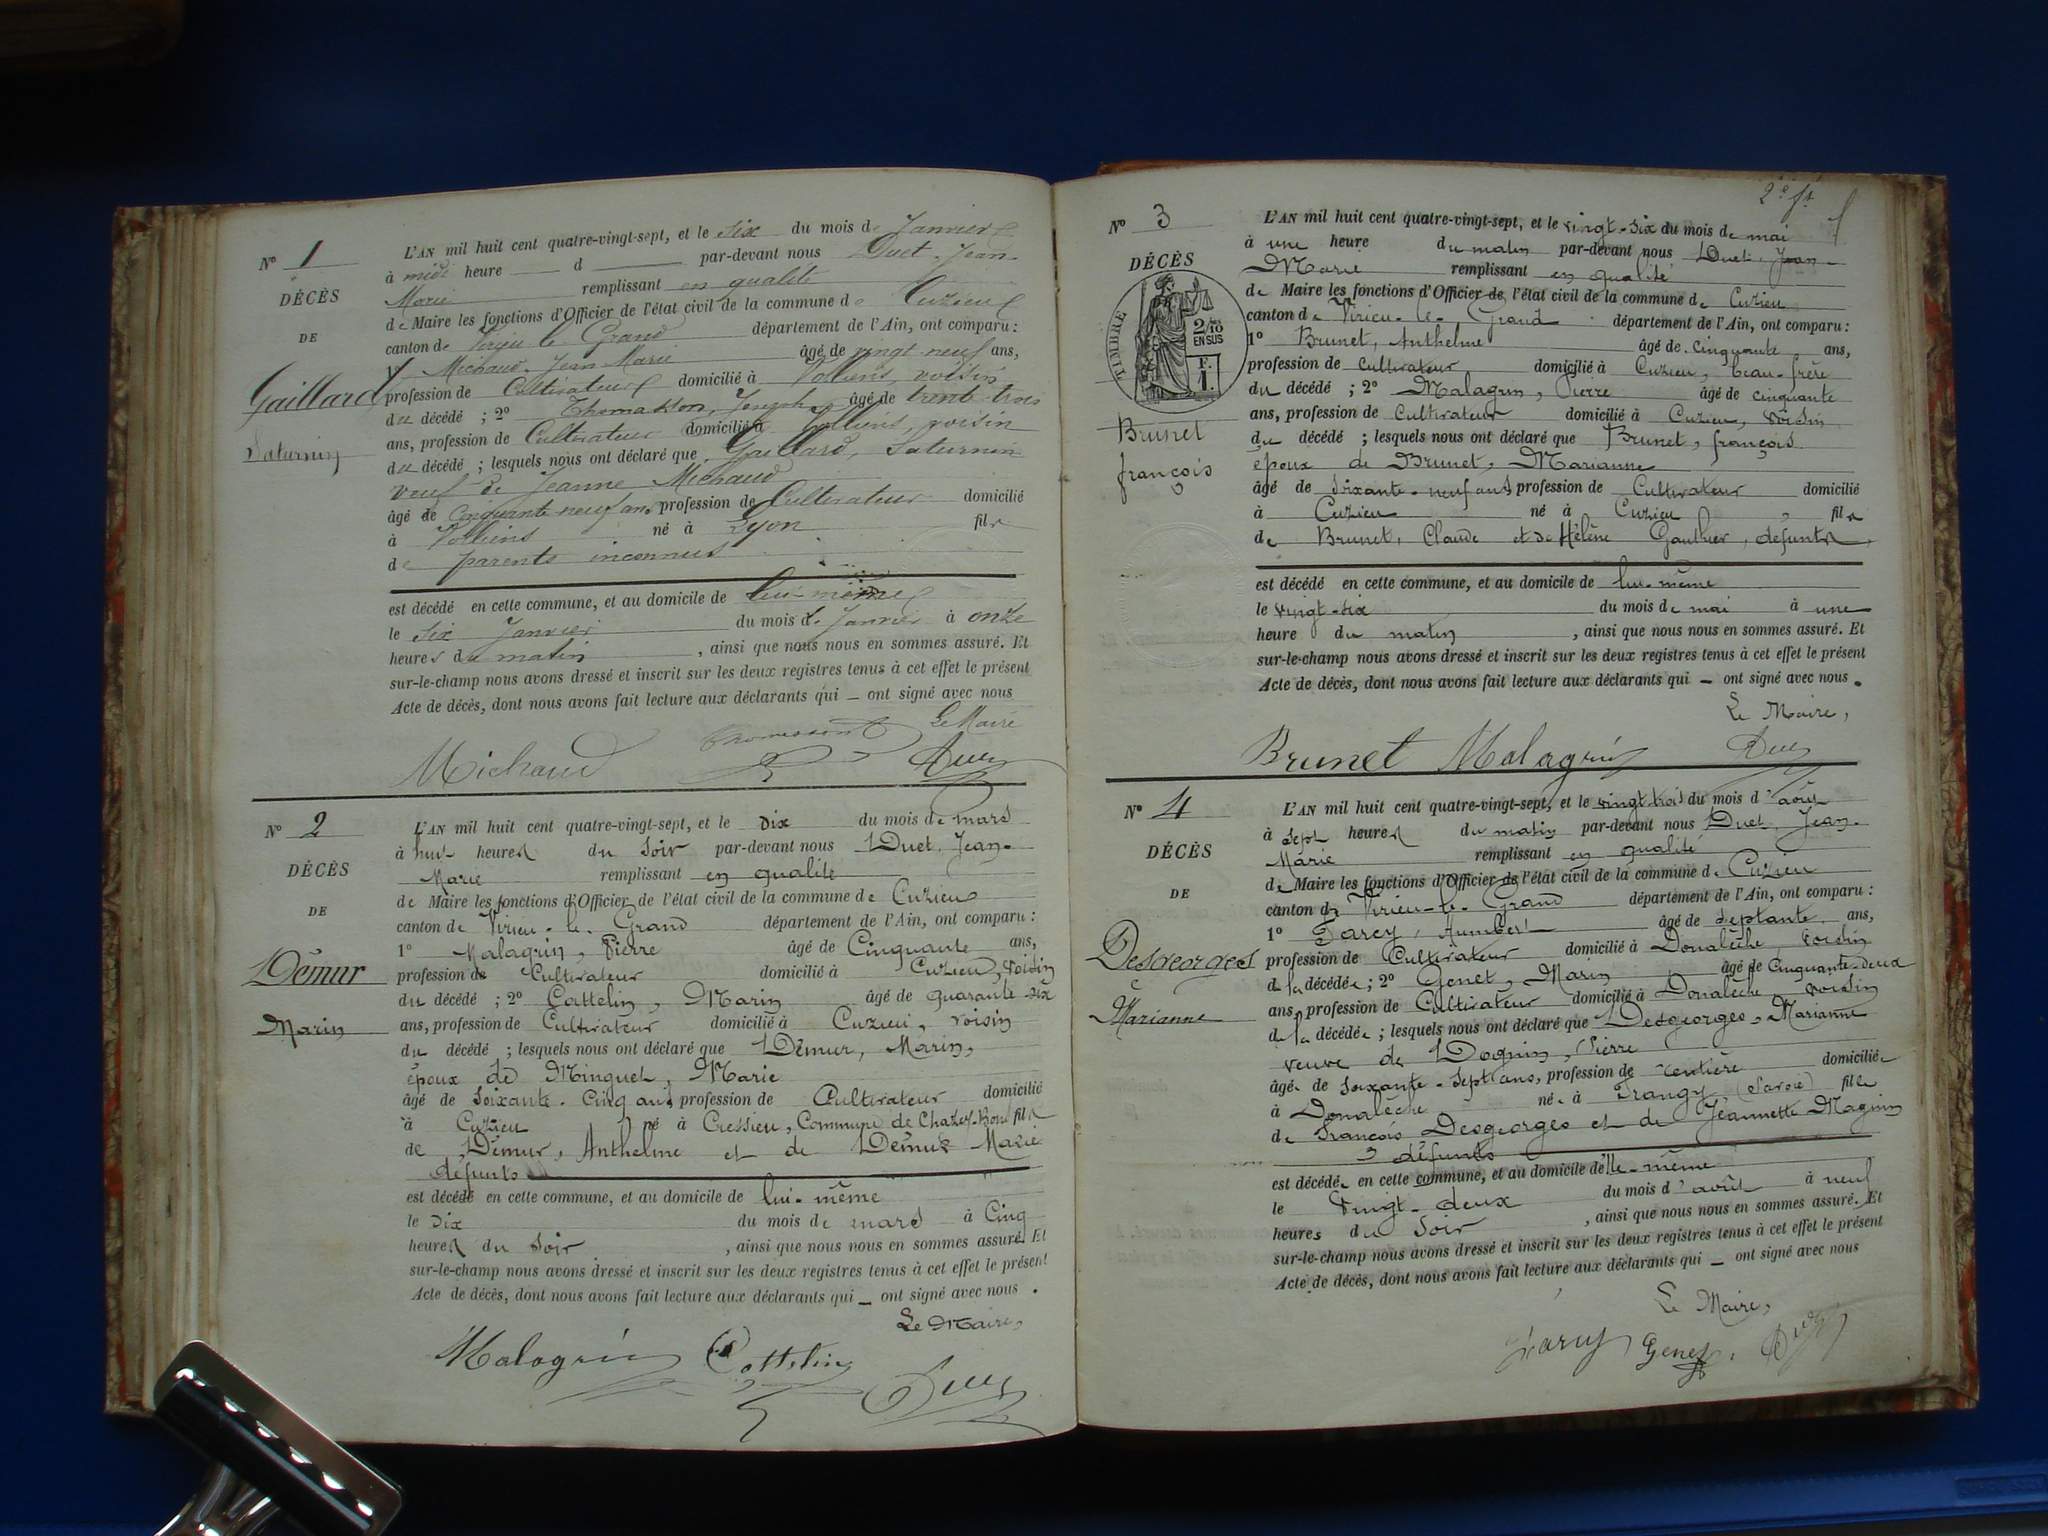 N° 1
DÉCÈS
DE
Gaillard
Saturnin
L'AN mil huit cent quatre-vingt-sept, et le six du mois de Janvier
à midi heure d par-devant nous Duet, Jean-
Marie remplissant en qualité
de Maire les fonctions d'Officier de l'état civil de la commune de Cuzieu
canton de Virieu le Grand département de l'Ain, ont comparu :
1° Michaud, Jean Marie âgé de vingt neuf ans,
profession de Cultivateur domicilié à Volliens, voisin
du décédé ; 2° Thomasson, Joseph âgé de trente trois
ans, profession de Cultivateur domicilié à Volliens, voisin
du décédé ; lesquels nous ont déclaré que Gaillard, Saturnin
veuf de Jeanne Michaud
âgé de Cinquante neuf ans, profession de Cultivateur domicilié
à Volliens né à Lyon fils
de parents inconnus
est décédé en cette commune, et au domicile de lui-même
le six Janvier du mois de Janvier à onze
heures du matin , ainsi que nous nous en sommes assuré. Et
sur-le-champ nous avons dressé et inscrit sur les deux registres tenus à cet effet le présent
Acte de décès, dont nous avons fait lecture aux déclarants qui — ont signé avec nous
Le Maire
Michaud Thomasson Duet
N° 2
DÉCÈS
DE
Démur
Marin
L'AN mil huit cent quatre-vingt-sept, et le dix du mois de mars
à huit heures du soir par-devant nous Duet, Jean-
Marie remplissant en qualité
de Maire les fonctions d'Officier de l'état civil de la commune de Cuzieu
canton de Virieu-le-Grand département de l'Ain, ont comparu :
1° Malagrin, Pierre âgé de Cinquante ans,
profession de Cultivateur domicilié à Cuzieu, voisin
du décédé ; 2° Cottelin, Marin âgé de quarante-six
ans, profession de Cultivateur domicilié à Cuzieu, voisin
du décédé ; lesquels nous ont déclaré que Démur, Marin,
époux de Minguet, Marie
âgé de soixante-cinq ans, profession de Cultivateur domicilié
à Cuzieu né à Cressieu, Commune de Chazey-Bons fils
de Démur, Anthelme et de Démur Marie
défunts
est décédé en cette commune, et au domicile de lui-même
le dix du mois de mars à Cinq
heures du soir , ainsi que nous nous en sommes assuré. Et
sur-le-champ nous avons dressé et inscrit sur les deux registres tenus à cet effet le présent
Acte de décès, dont nous avons fait lecture aux déclarants qui — ont signé avec nous.
Le Maire,
Malagrin Cottelin Duet
2e ft
N° 3
DÉCÈS
TIMBRE
2/10
EN SUS
F.
1.
Brunet
françois
L'AN mil huit cent quatre-vingt-sept, et le vingt-six du mois de mai
à une heure du matin par-devant nous Duet, Jean-
Marie remplissant en qualité
de Maire les fonctions d'Officier de l'état civil de la commune de Cuzieu
canton de Virieu-le-Grand département de l'Ain, ont comparu :
1° Brunet, Anthelme âgé de cinquante ans,
profession de cultivateur domicilié à Cuzieu, beau-frère
du décédé ; 2° Malagrin, Pierre âgé de cinquante
ans, profession de Cultivateur domicilié à Cuzieu, voisin
du décédé ; lesquels nous ont déclaré que Brunet, françois
époux de Brunet, Marianne
âgé de soixante-neuf ans profession de Cultivateur domicilié
à Cuzieu né à Cuzieu, fils
de Brunet, Claude et de Hélène Gauthier, défunts,
est décédé en cette commune, et au domicile de lui-même
le vingt-six du mois de mai à une
heure du matin , ainsi que nous nous en sommes assuré. Et
sur-le-champ nous avons dressé et inscrit sur les deux registres tenus à cet effet le présent
Acte de décès, dont nous avons fait lecture aux déclarants qui — ont signé avec nous.
Le Maire,
Brunet Malagrin Duet
N° 4
DÉCÈS
DE
Desgeorges
Marianne
L'AN mil huit cent quatre-vingt-sept, et le vingt-trois du mois d'août
à sept heures du matin par-devant nous Duet, Jean-
Marie remplissant en qualité
de Maire les fonctions d'Officier de l'état civil de la commune de Cuzieu
canton de Virieu-le-Grand département de l'Ain, ont comparu :
1° Darcy, Humbert âgé de septante ans,
profession de Cultivateur domicilié à Donalèche, voisin
de la décédée ; 2° Genet, Marin âgé de Cinquante-deux
ans, profession de Cultivateur domicilié à Donalèche, voisin
de la décédée ; lesquels nous ont déclaré que Desgeorges, Marianne
veuve de Dognin, Pierre
âgée de soixante-sept ans, profession de rentière domiciliée
à Donalèche née à Frangy (Savoie) fille
de François Desgeorges et de Jeannette Magnin
défunts
est décédée en cette commune, et au domicile d'elle-même
le Vingt-deux du mois d'août à neuf
heures du soir , ainsi que nous nous en sommes assuré. Et
sur-le-champ nous avons dressé et inscrit sur les deux registres tenus à cet effet le présent
Acte de décès, dont nous avons fait lecture aux déclarants qui — ont signé avec nous
Le Maire,
Darcy Genet Duet